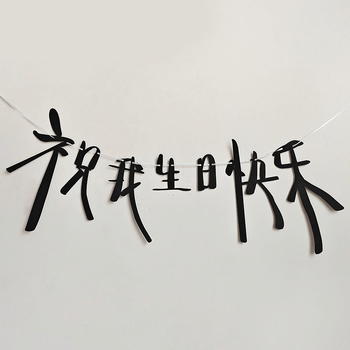 祝我生日快乐